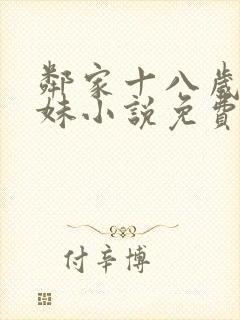 鄰家十八歲
妹小說免費
付辛博